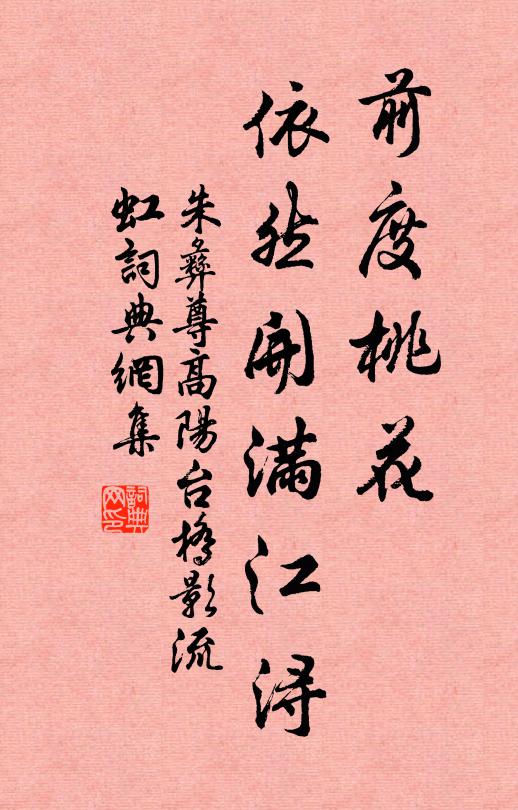 前度桃花
依然開滿江潯
朱彝尊高陽台橋影流
虹詞典網集
詞典网印